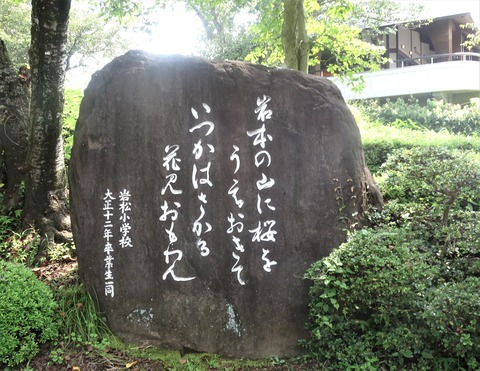 岩本の山に桜を
うえおきて
いつかはさかる
花見おもわん
岩松小学校
大正十二年卒業生一同